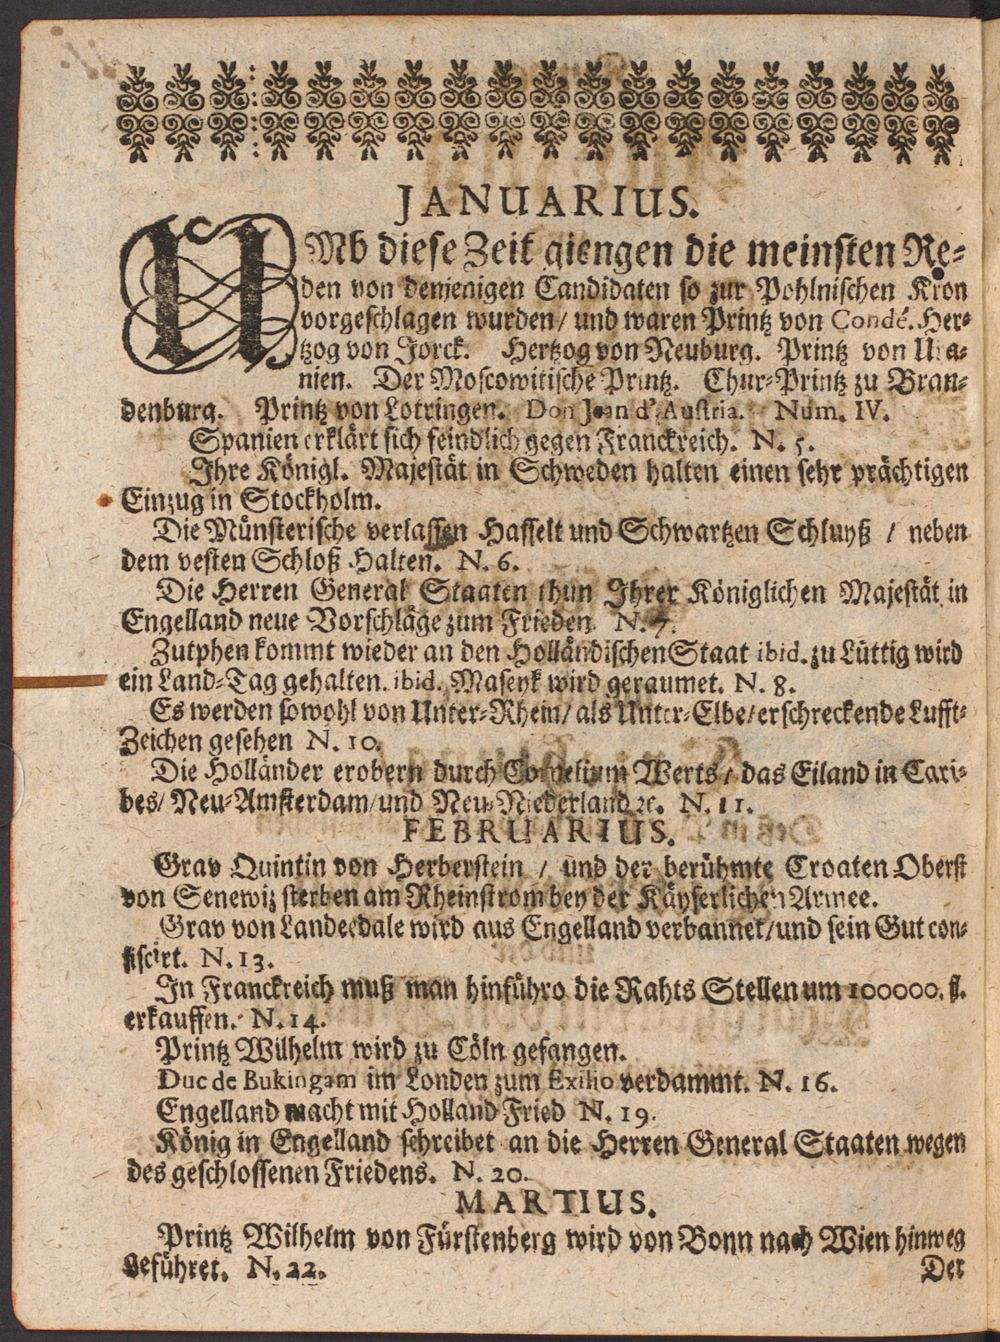 JANUARIUS.
UMb diese Zeit giengen die meinsten Re-
den von denjenigen Candidaten so zur Pohlnischen Kron
vorgeschlagen wurden / und waren Printz von Condé. Her-
tzog von Jorck. Hertzog von Neuburg. Printz von Ura-
nien. Der Moscowitische Printz. Chur-Printz zu Bran-
denburg. Printz von Lotringen. Don Jean d'Austria. Num. IV.
Spanien erklärt sich feindlich gegen Franckreich. N. 5.
Ihre Königl. Majestät in Schweden halten einen sehr prächtigen
Einzug in Stockholm.
Die Münsterische verlassen Hasselt und Schwartzen Schluyß / neben
dem vesten Schloß Halten. N. 6.
Die Herren General Staaten thun Ihrer Königlichen Majestät in
Engelland neue Vorschläge zum Frieden N. 7.
Zutphen kommt wieder an den Holländischen Staat ibid. zu Lüttig wird
ein Land-Tag gehalten. ibid. Maseyk wird geraumet. N. 8.
Es werden sowohl von Unter-Rhein / als Unter-Elbe / erschreckende Lufft-
Zeichen gesehen N. 10.
Die Holländer erobern durch Cornelium Werts / das Eiland in Cari-
bes / Neu-Amsterdam / und Neu-Niederland ꝛc. N. 11.
FEBRUARIUS.
Grav Quintin von Herberstein / und der berühmte Croaten Oberst
von Senewiz sterben am Rheinstrom bey der Käyserlichen Armee.
Grav von Landerdale wird aus Engelland verbannet / und sein Gut con-
fiscirt. N. 13.
In Franckreich muß man hinführo die Rahts Stellen um 100000. fl.
erkauffen. N. 14.
Printz Wilhelm wird zu Cöln gefangen.
Duc de Bukingam im Londen zum Exilio verdammt. N. 16.
Engelland macht mit Holland Fried N. 19.
König in Engelland schreibet an die Herren General Staaten wegen
des geschlossenen Friedens. N. 20.
MARTIUS.
Printz Wilhelm von Fürstenberg wird von Bonn nach Wien hinweg
geführet. N. 22.
Der